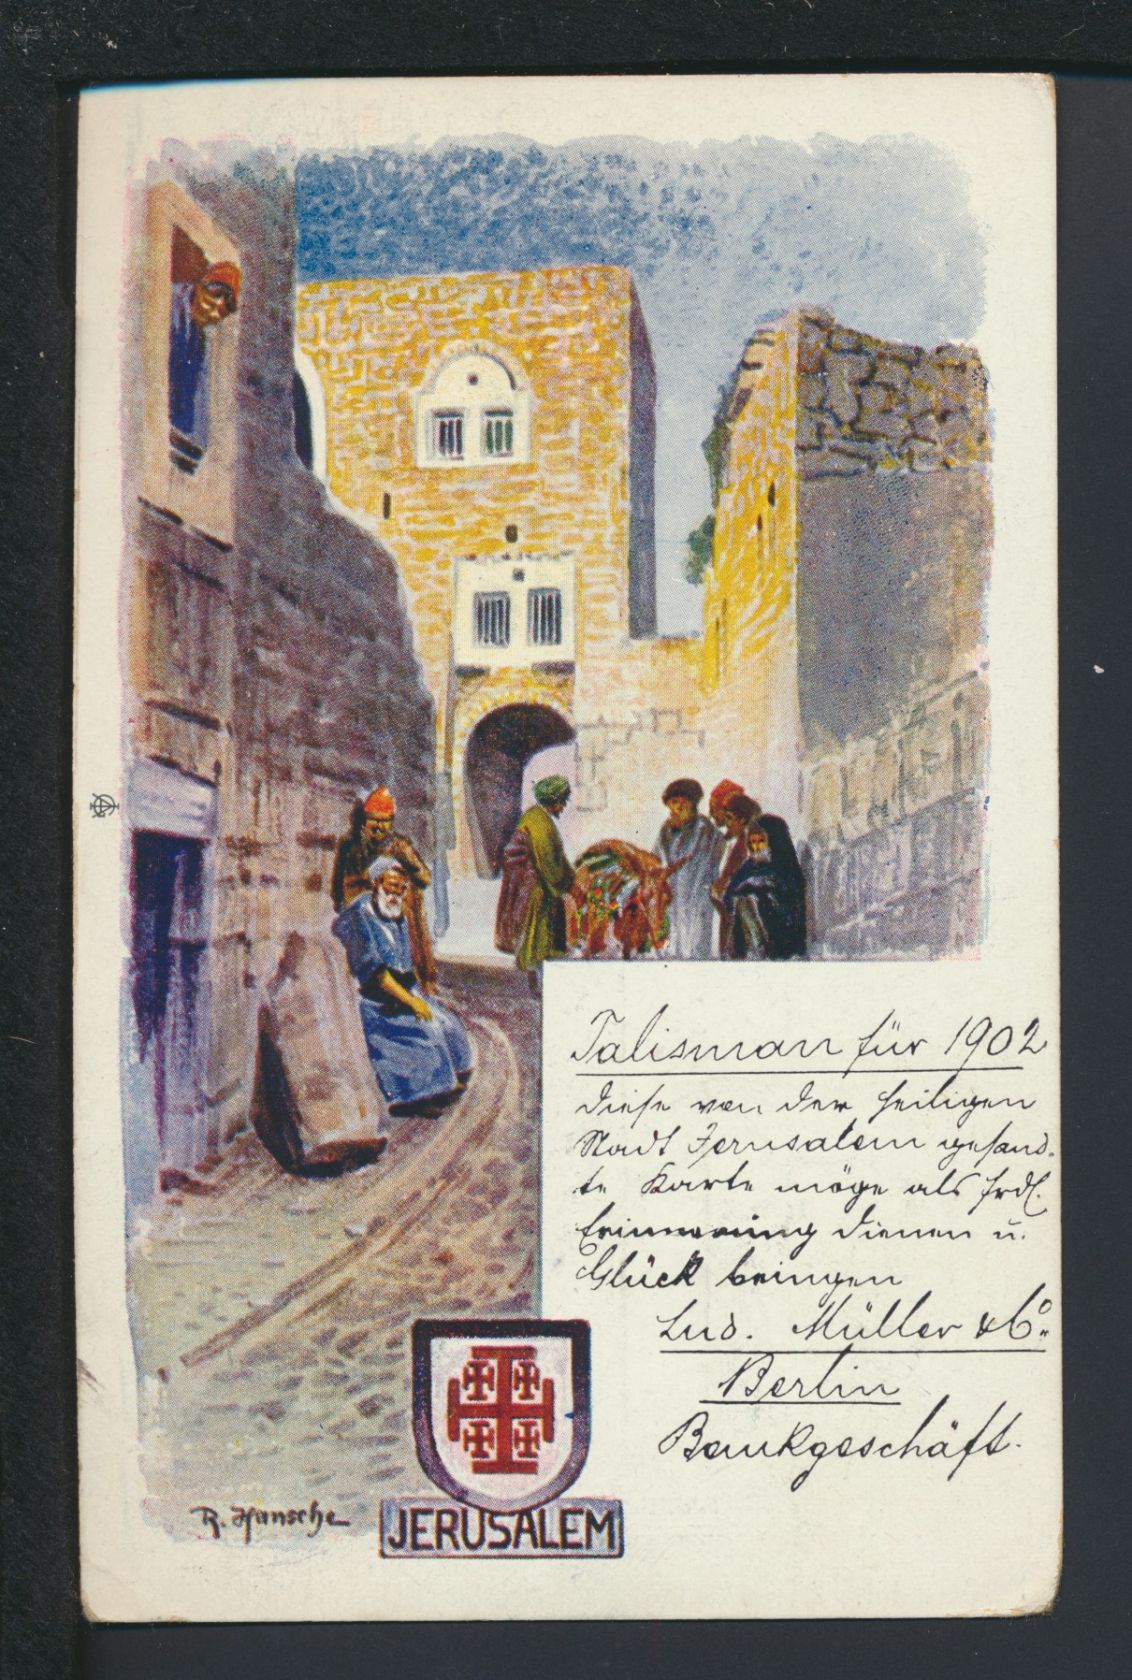 Talisman für 1902
diese von der heiligen
Stadt Jerusalem gesand-
te Karte möge als frdl.
Erinnerung dienen u.
Glück bringen
Lud. Müller & Co.
Berlin
Bankgeschäft.
R. Hansche
JERUSALEM